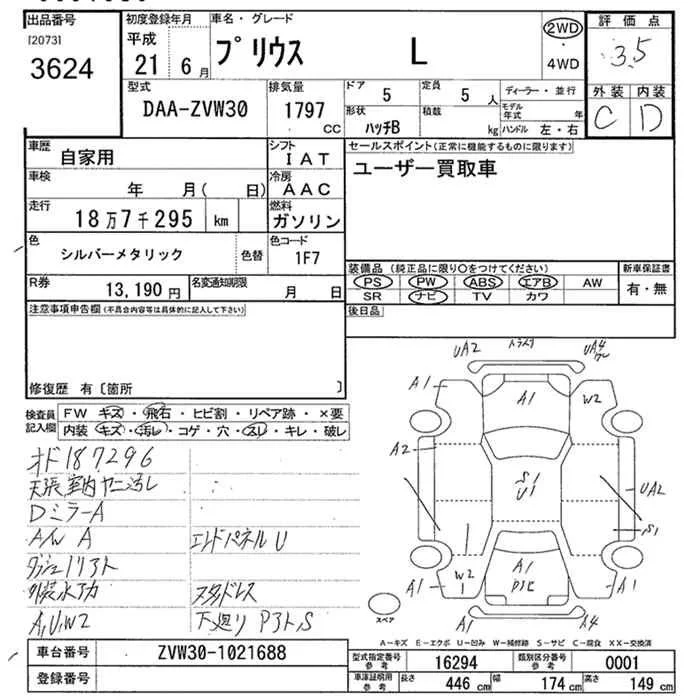 出品番号
[2073]
3624
初度登録年月
平成
21年 6月
車名・グレード
プリウス L
2WD
・
4WD
評価点
3.5
外装 内装
C D
型式
DAA-ZVW30
排気量
1797
CC
ドア 5
定員 5 人
形状
ハッチB
積載 kg
ディーラー・並行
モデル年式 年
ハンドル 左・右
車歴 自家用
シフト
IAT
車検 年 月( 日)
冷房
AAC
走行 18万7千295 km
燃料
ガソリン
色 シルバーメタリック
色替
色コード
1F7
R券 13,190円
名変通知期限 月 日
セールスポイント(正常に機能するものに限ります)
ユーザー買取車
装備品(純正品に限り○をつけてください)
PS PW ABS エアB AW
SR ナビ TV カワ
新車保証書
有・無
後日品
注意事項申告欄(不具合内容等は具体的に記入して下さい)
修復歴 有〔箇所 〕
検査員
記入欄
FW キズ・飛石・ヒビ割・リペア跡・×要
内装 キズ・汚レ・コゲ・穴・スレ・キレ・破レ
オド187296
天張室内ヤニ汚レ
DミラーA
A/W A
エンドパネルU
外装水アカ
スタッドレス
A,U,W2
下廻り P3ト,S
UA2
UA4
A1
A1
W2
A1
A2
S1
U1
UA2
S1
A1
W2
1
A1
A1
A1
A4
スペア
A-キズ E-エクボ U-凹み W-補修跡 S-サビ C-腐食 XX-交換済
車台番号 ZVW30-1021688
登録番号
型式指定番号
参考
16294
類別区分番号
参考
0001
車庫証明用
参考
長さ 446 cm 幅 174 cm 高さ 149 cm